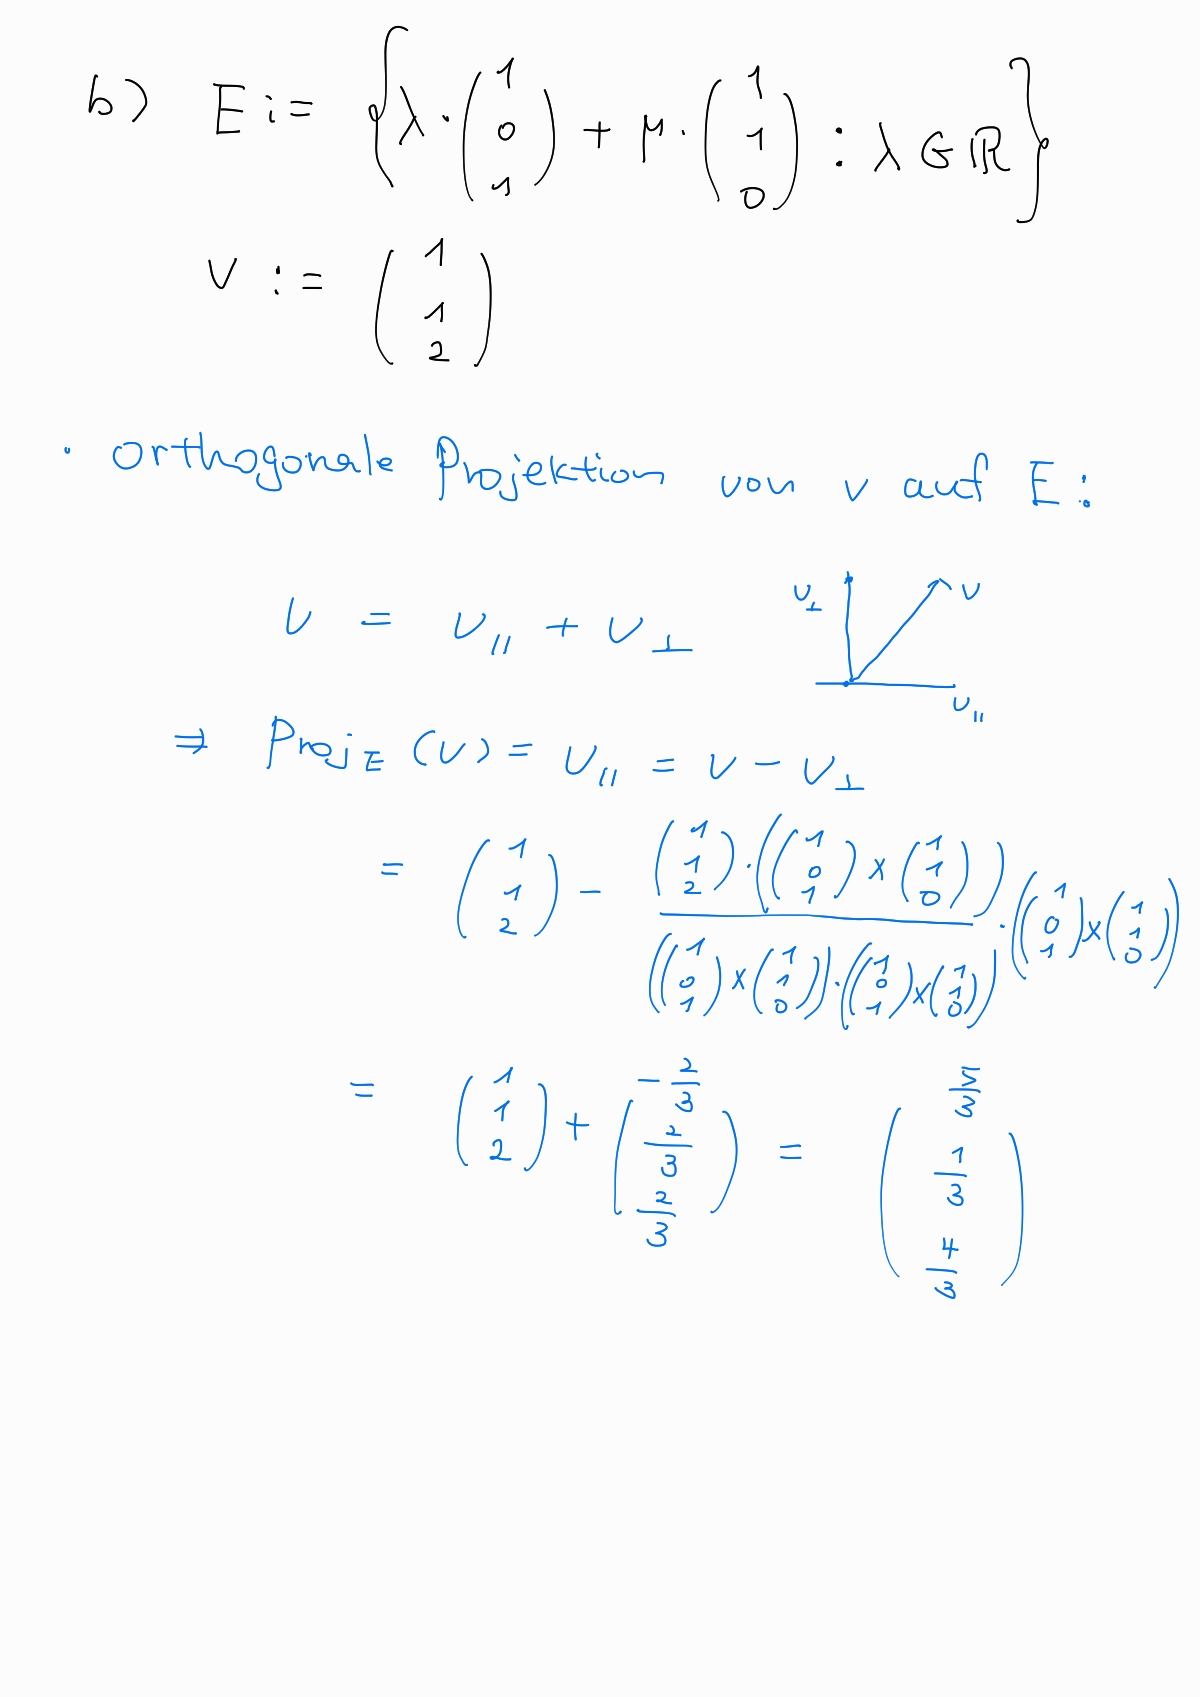 b) E := { λ · (1 0 1) + μ · (1 1 0) : λ ∈ ℝ }
v := (1 1 2)
· orthogonale Projektion von v auf E:
v = v_∥ + v_⊥
v_⊥ v v_∥
⇒ Proj_E (v) = v_∥ = v - v_⊥
= (1 1 2) - ((1 1 2) · ((1 0 1) × (1 1 0))) / (((1 0 1) × (1 1 0)) · ((1 0 1) × (1 1 0))) · ((1 0 1) × (1 1 0))
= (1 1 2) + (-2/3 2/3 2/3) = (5/3 1/3 4/3)